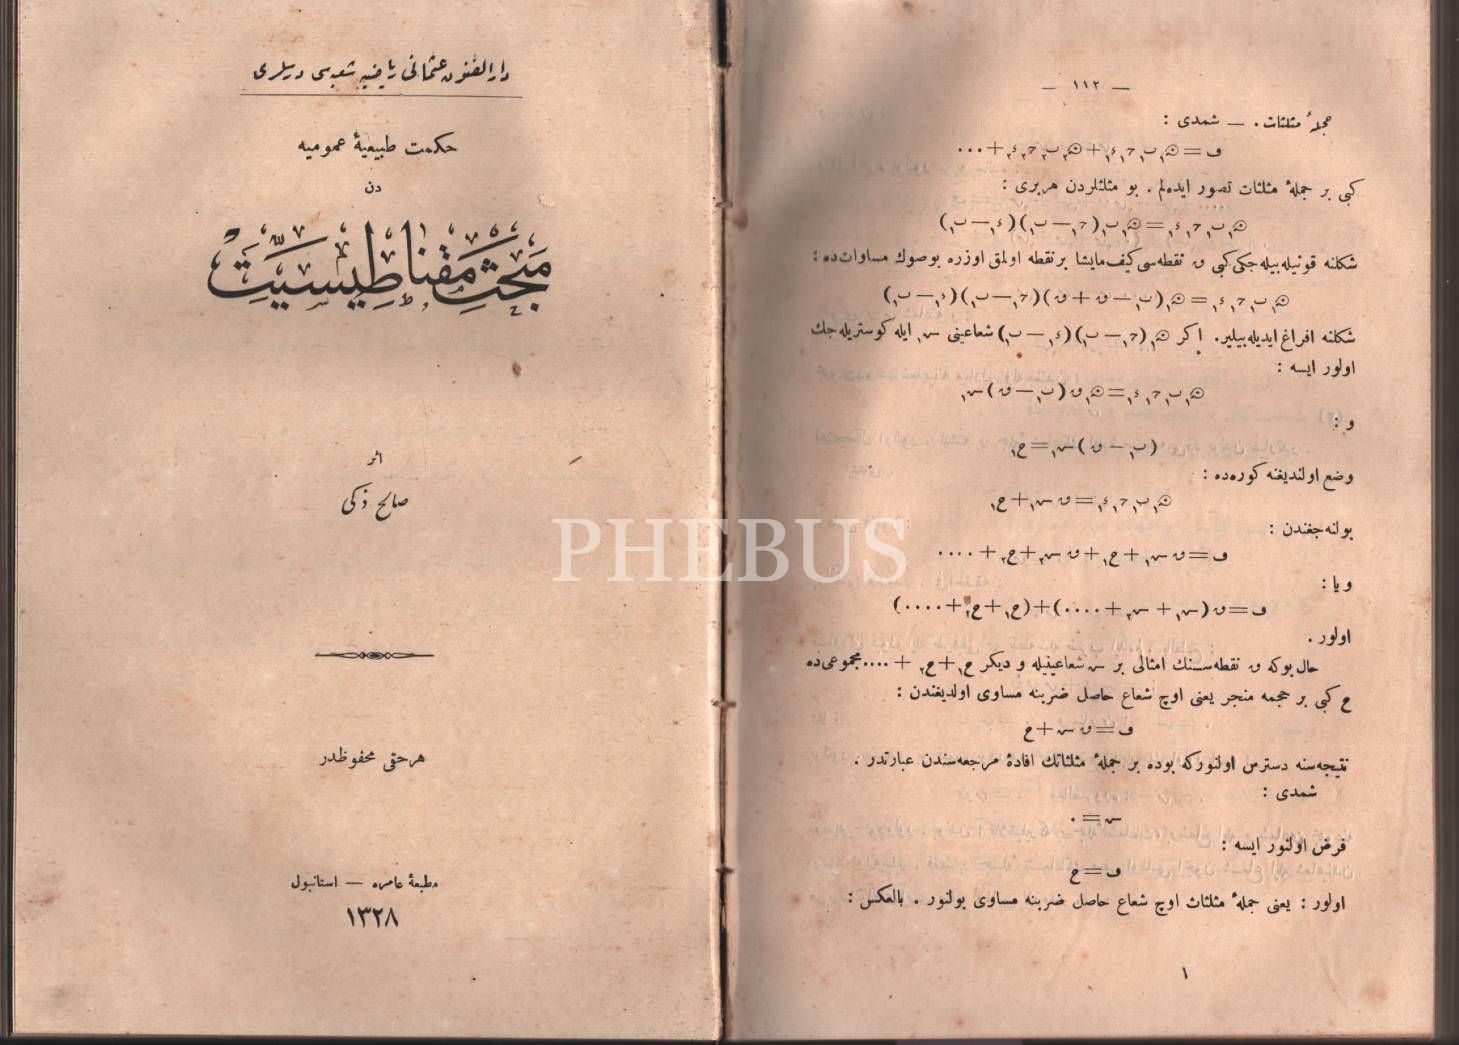 دار الفنون عثمانی ریاضیه شعبه‌سی درسلری
حكمت طبیعیهٔ عمومیه
دن
مبحث مقناطیسیت
اثر
صالح ذكی
هر حقی محفوظدر
مطبعهٔ عامره — استانبول
١٣٢٨
— ١١٢ —
جملهٔ مثلثات . — شمدی :
كبی بر جملهٔ مثلثات تصور ایده‌لم . بو مثلثلردن هربری :
شكلنه قونیله‌بیله‌جكی كبی و نقطه‌سی كیف‌مایشا بر نقطه اولمق اوزره بوصوك مساوات‌ده :
شكلنه افراغ ایدیله‌بیلیر. اكر شعاعینی س١ ایله كوستریله‌جك
اولور ایسه :
و :
(ب١ — و) س١ = ح١
وضع اولندیغنه كوره‌ده :
بولنه‌جغندن :
ف = و س١ + ح١ + و س٢ + ح٢ + ....
ویا :
ف = و (س١ + س٢ + ....) + (ح١ + ح٢ + ....)
اولور .
حال بوكه و نقطه‌سنك امثالی بر س شعاعینیله و دیكر ح١ + ح٢ + .... مجموعی‌ده
ح كبی بر حجمه منجر یعنی اوچ شعاع حاصل ضربنه مساوی اولدیغندن :
ف = و س + ح
نتیجه‌سنه دسترس اولنوركه بوده بر جملهٔ مثلثاتك افادهٔ مرجعه‌سندن عبارتدر .
شمدی :
س = ٠
فرض اولنور ایسه :
ف = ح
اولور : یعنی جملهٔ مثلثات اوچ شعاع حاصل ضربنه مساوی بولنور . بالعكس :
١
PHEBUS